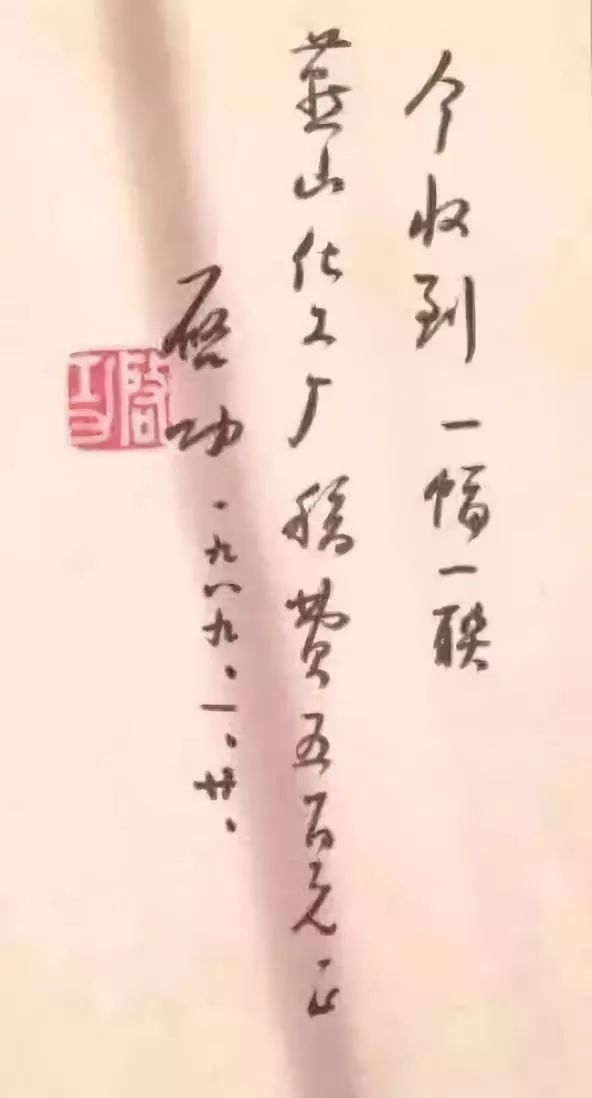 今收到一幅一联
燕山化工厂稿费五百元正
启功 一九八九、一、廿、
启功